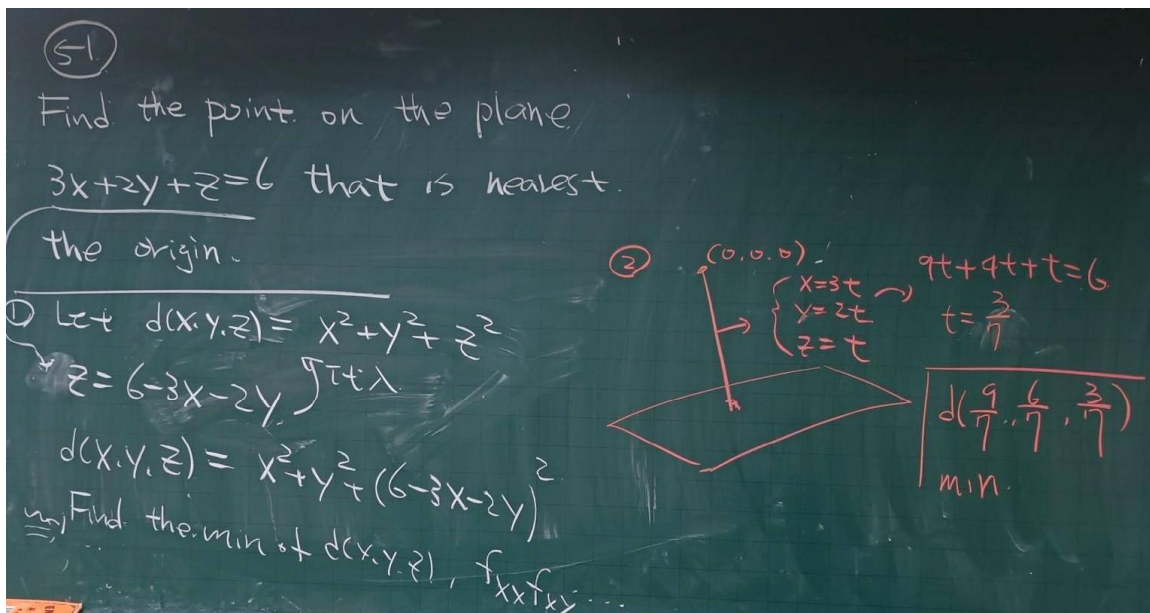 5-1.
Find the point on the plane
3x+2y+z=6 that is nearest
the origin.
① Let d(x,y,z) = x²+y²+z²
z=6-3x-2y
d(x,y,z) = x²+y²+(6-3x-2y)²
Find the min of d(x,y,z), fxx fxy ....
② (0,0,0)
x=3t
y=2t
z=t
9t+4t+t=6
t=3/7
d(9/7, 6/7, 3/7)
min.